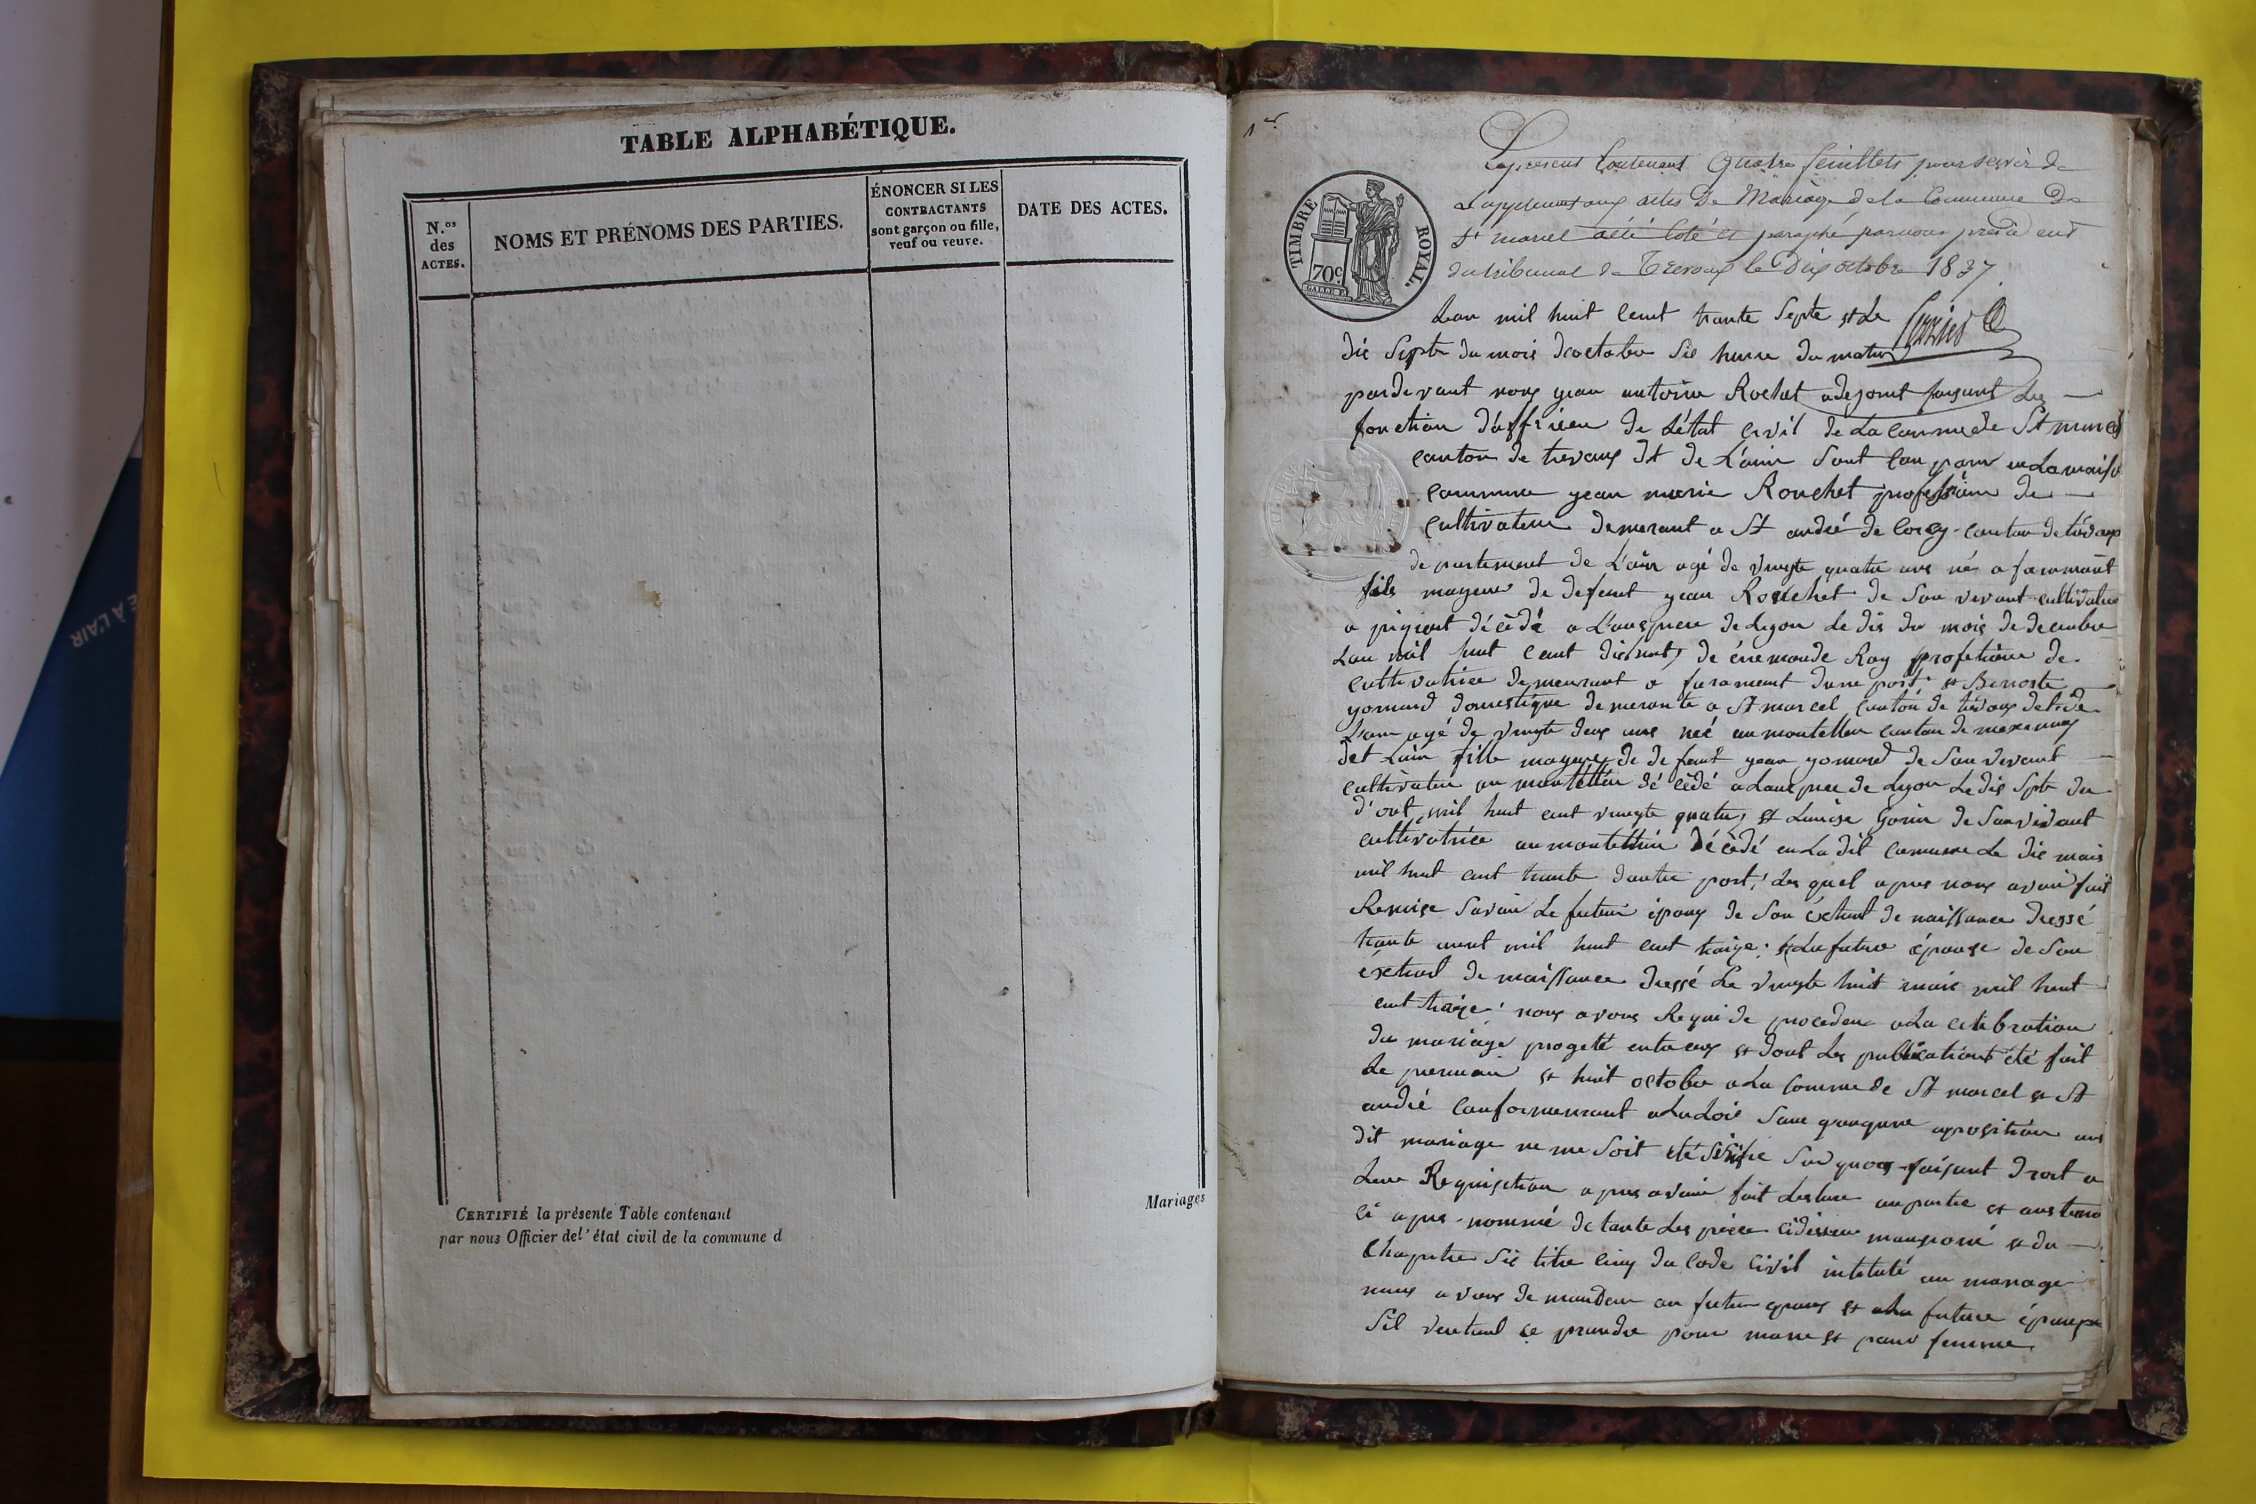 TABLE ALPHABÉTIQUE.
N.os des ACTES.
NOMS ET PRÉNOMS DES PARTIES.
ÉNONCER SI LES CONTRACTANTS sont garçon ou fille, veuf ou veuve.
DATE DES ACTES.
Mariages
CERTIFIÉ la présente Table contenant
par nous Officier del' état civil de la commune d
É À L'AIR
1er
Le present Contenant Quatre feuillets pour servir de
Supplement aux actes de Mariage de la Commune de
St marcel a été Coté et paraphé par nous président
du tribunal de Trevoux le Dix octobre 1837
TIMBRE ROYAL.
70c
Lan mil huit Cent trante Septe et Le
dis Septe du mois doctobre Sis heure du matin
pardevant nous jean antoine Rochet adejoint faisant Les
fonction d'officieu de L'état civil de La commude St marcel
canton de trevoux dt de L'ain Sont Con paru en La maiso
commune jean marie Rouchet profesion de
cultivateur demerant a St andré de Corcy canton de trévoux
departement de L'ain agé de vingte quatre ans né a faramant
fils mageur de defeunt jean Rouchet de Son vivant cultivateur
a décédé a de Lyon Le dis du mois de decembre
Lan mil huit cent de énemonde Ray profetion de
cultivatrice demeurant a faramant dune port et Benoite
yomard domestique demerante a St marcel canton de trévoux
Lain agé de vingte deux ans née au montellier canton de meximieux
det Lain fille mageure de defeunt jean yomard de Son vivant
cultivateur au montellier décédé a de Lyon Le dis Septe du
d'out mil huit cent vingte quatre, et Louise de Son vivant
cultivatrice au montellier décédé en La dit commune Le dis mais
mil huit cent trante dautre port, Les quel apres nous avoir fait
Remise Savoir Le futur époux de Son éxtrait de naissance dressé
trante mil huit cent traize; et La future épouse de Son
éxtrait de naissance dressé Le vingte huit mil huit
cent traize; nous avons Requi de proceder a La célébration
du mariage progeté entre eux et dont Les publications été fait
Le premier et huit octobre a La Commune de St marcel et St
andré conformement a La Loie Sans apposition au
dit mariage ne me Soit été Sur quois faisant droit a
Leur Requisition apres avoir fait Lecture au partie et aus temo
ci apres nommé de toute Les pièce cidessu et du
Chapitre Sis titre cinq du Code Civil intitulé au mariage
nous avons demander au futur epoux et a La future épouse
Sil veulent se prandre pour marie et pour femme